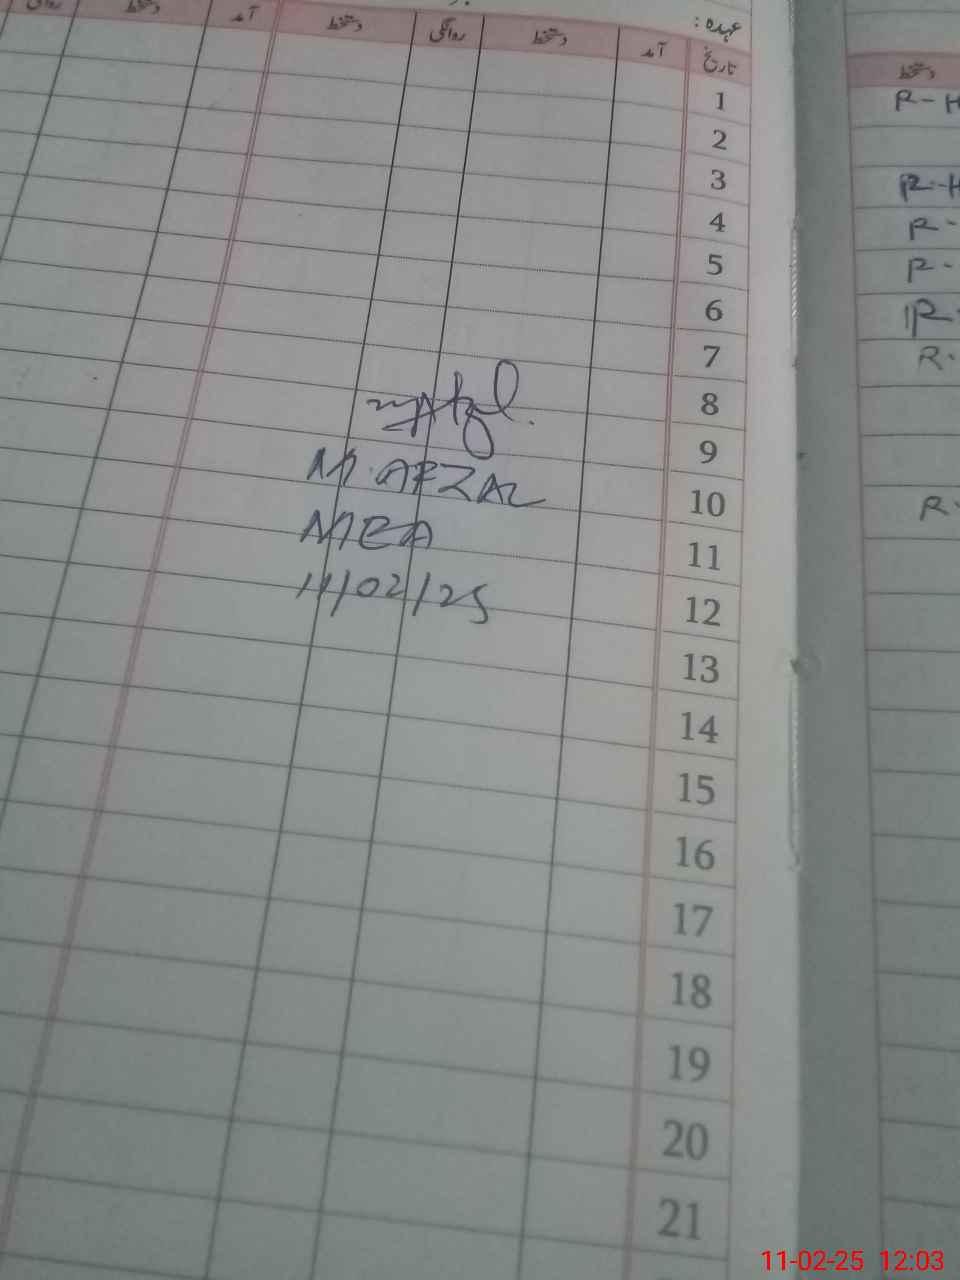 عہدہ:
تاریخ آمد دستخط روانگی دستخط آمد دستخط روانگی
1
2
3
4
5
6
7
8
9
10
11
12
13
14
15
16
17
18
19
20
21
M. AFZAL
MEA
11/02/25
دستخط
R-H
R-H
R-
R-
R-
R-
R-
11-02-25 12:03